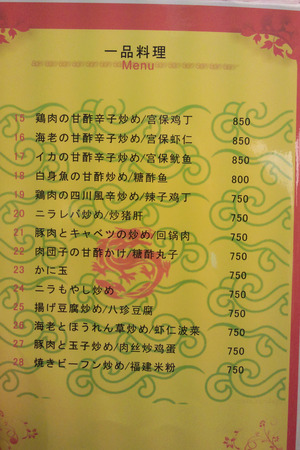 一品料理
Menu
15 鶏肉の甘酢辛子炒め/宮保鸡丁 850
16 海老の甘酢辛子炒め/宮保虾仁 850
17 イカの甘酢辛子炒め/宮保鱿鱼 850
18 白身魚の甘酢炒め/糖醋鱼 800
19 鶏肉の四川風辛炒め/辣子鸡丁 750
20 ニラレバ炒め/炒猪肝 750
21 豚肉とキャベツの炒め/回锅肉 750
22 肉団子の甘酢かけ/糖醋丸子 750
23 かに玉 750
24 ニラもやし炒め 750
25 揚げ豆腐炒め/八珍豆腐 750
26 海老とほうれん草炒め/虾仁波菜 750
27 豚肉と玉子炒め/肉丝炒鸡蛋 750
28 焼きビーフン炒め/福建米粉 750